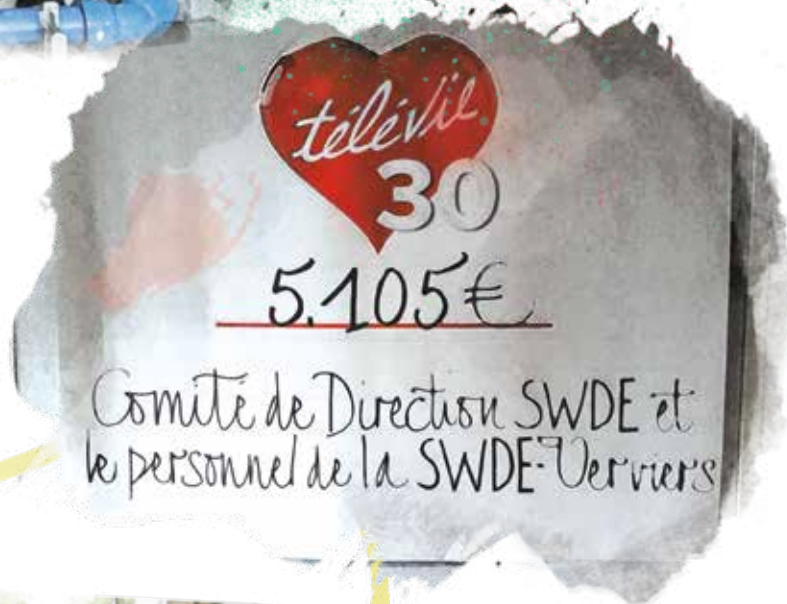 télévie
30
5.105€
Comité de Direction SWDE et
le personnel de la SWDE-Verviers